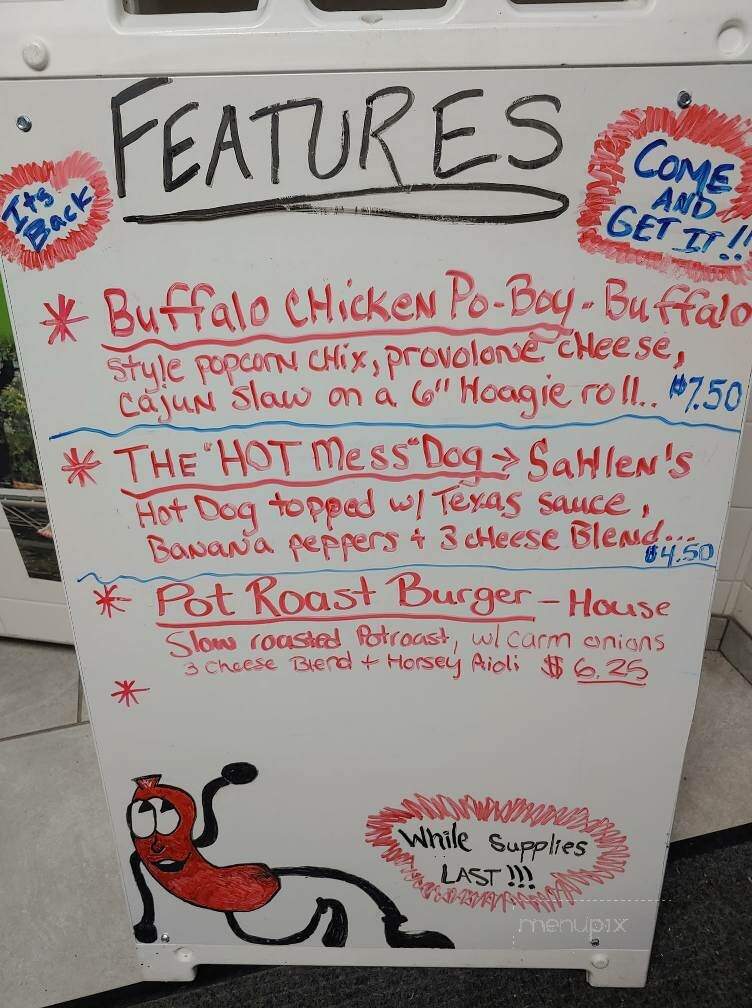 FEATURES
Its
Back
COME
AND
GET IT!!
* Buffalo CHicken Po-Boy - Buffalo
style popcorn CHix, provolone cHeese,
cajun slaw on a 6" Hoagie roll.. $7.50
* THE "HOT Mess" Dog → SaHlen's
Hot Dog topped w/ Texas sauce,
Banana peppers + 3 cHeese Blend...
$4.50
* Pot Roast Burger - House
Slow roasted Potroast, w/ carm onions
3 Cheese Blend + Horsey Aioli $6.25
*
While Supplies
LAST!!!
menupix